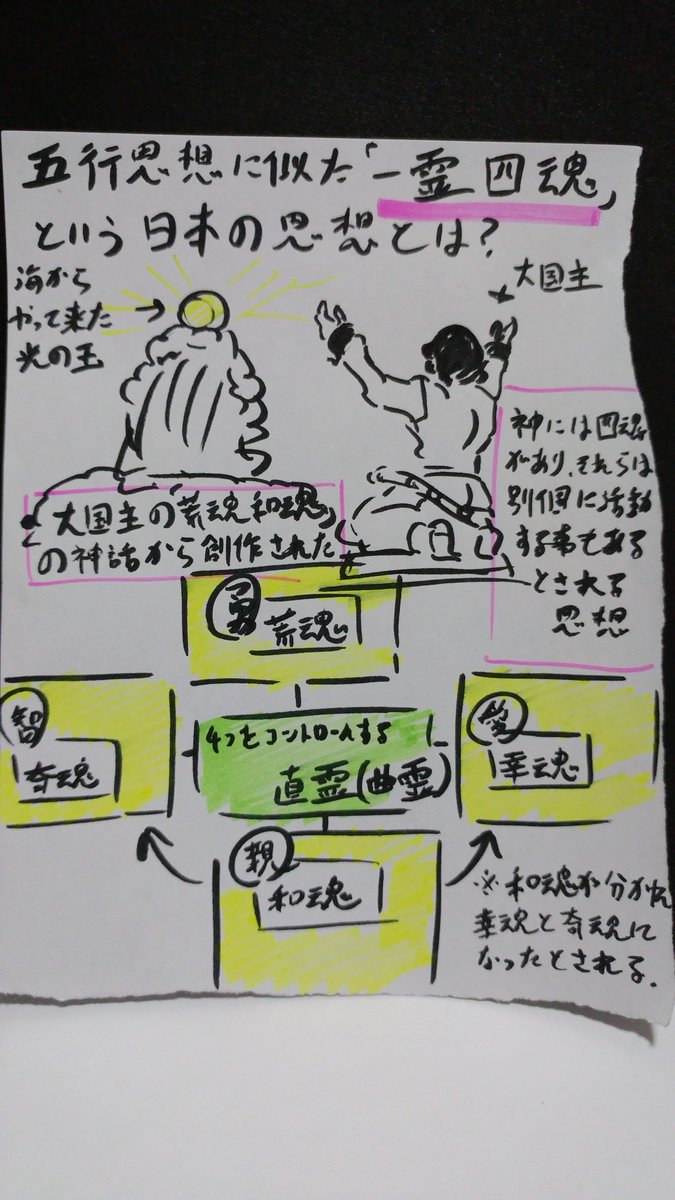 五行思想に似た「一霊四魂」
という日本の思想とは?
海から
やって来た
光の玉
大国主
神には四魂
があり、それらは
別個に活動
する事もある
とされる
思想
大国主の「荒魂和魂」
の神話から創作された
勇
荒魂
智
奇魂
4つをコントロールする
直霊(曲霊)
愛
幸魂
親
和魂
※和魂が分かれ
幸魂と奇魂に
なったとされる.